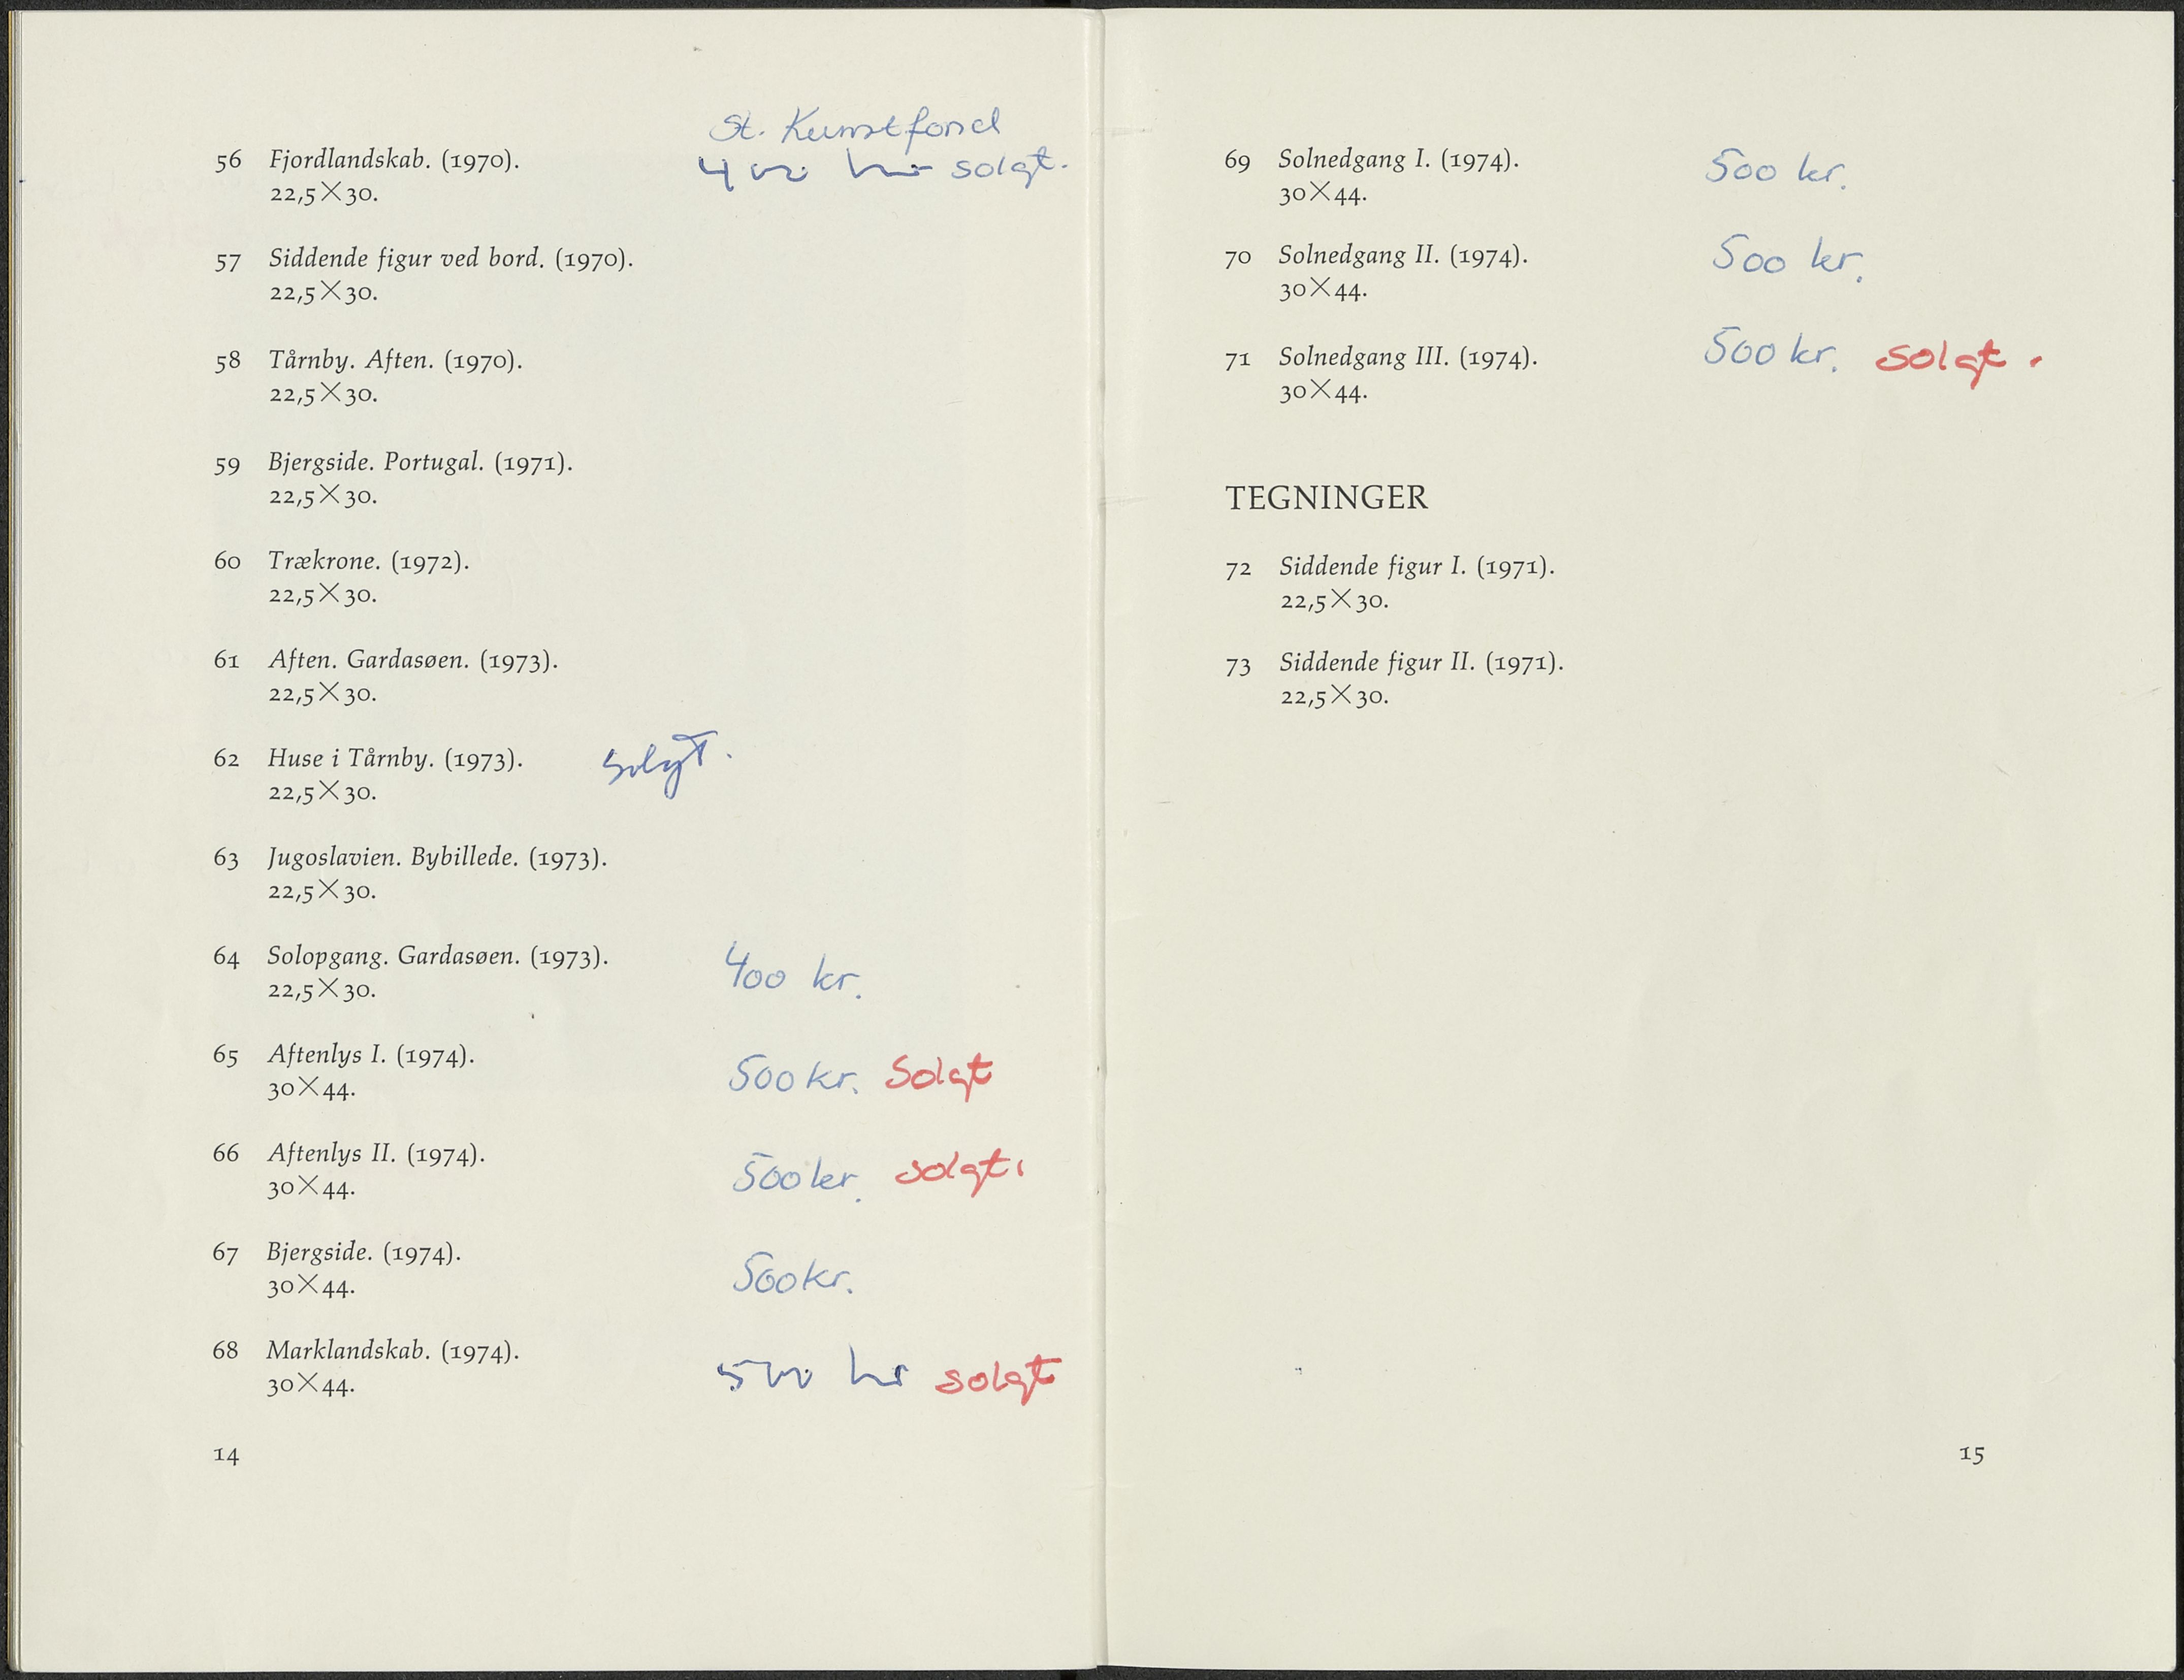 St. Kunstfond
56 Fjordlandskab. (1970). 400 kr solgt.
22,5×30.
57 Siddende figur ved bord. (1970).
22,5×30.
58 Tårnby. Aften. (1970).
22,5×30.
59 Bjergside. Portugal. (1971).
22,5×30.
60 Trækrone. (1972).
22,5×30.
61 Aften. Gardasøen. (1973).
22,5×30.
62 Huse i Tårnby. (1973). solgt.
22,5×30.
63 Jugoslavien. Bybillede. (1973).
22,5×30.
64 Solopgang. Gardasøen. (1973). 400 kr.
22,5×30.
65 Aftenlys I. (1974). 500 kr. Solgt
30×44.
66 Aftenlys II. (1974). 500 kr. solgt.
30×44.
67 Bjergside. (1974). 500 kr.
30×44.
68 Marklandskab. (1974). 500 kr solgt
30×44.
14
69 Solnedgang I. (1974). 500 kr.
30×44.
70 Solnedgang II. (1974). 500 kr.
30×44.
71 Solnedgang III. (1974). 500 kr. solgt.
30×44.
TEGNINGER
72 Siddende figur I. (1971).
22,5×30.
73 Siddende figur II. (1971).
22,5×30.
15